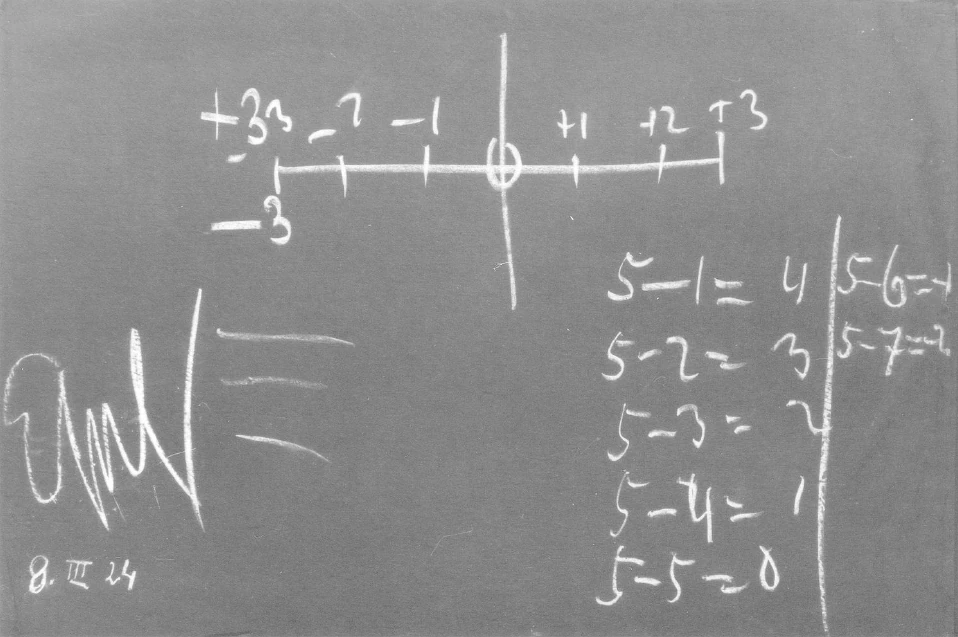 +33 -2 -1 0 +1 +2 +3
-3
5-1= 4
5-2= 3
5-3= 2
5-4= 1
5-5=0
5-6=-1
5-7=-2
8. III 24